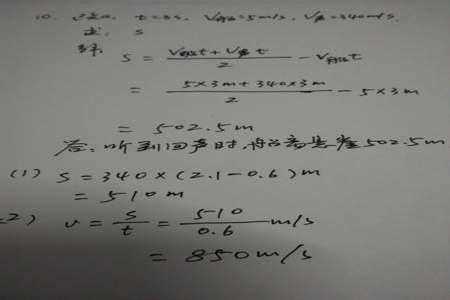 10. 已知: t=3s, V船=5m/s, V声=340m/s.
求: S
解: S = (V船t+V声t)/2 - V船t
= (5×3m+340×3m)/2 - 5×3m
= 502.5m
答: 听到回声时,船离悬崖502.5m.
(1) S=340×(2.1-0.6)m
=510m
2) v = s/t = 510/0.6 m/s
=850m/s